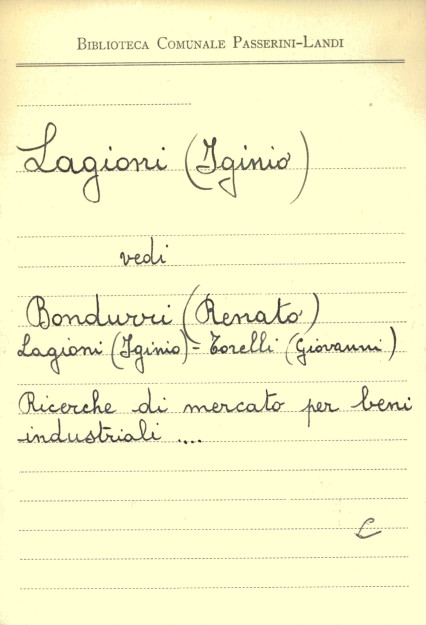 BIBLIOTECA COMUNALE PASSERINI-LANDI
Lagioni (Iginio)
vedi
Bondurri (Renato)
Lagioni (Iginio) - Torelli (Giovanni)
Ricerche di mercato per beni
industriali ....
L